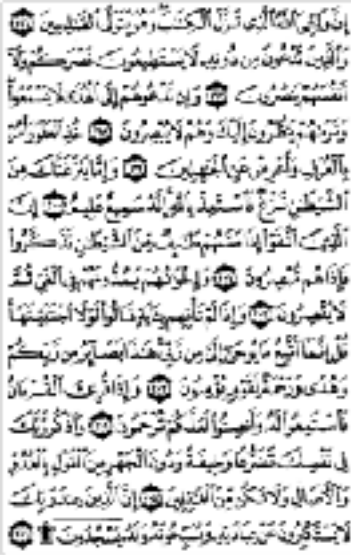 إِنَّ وَلِـِّۧيَ ٱللَّهُ ٱلَّذِي نَزَّلَ ٱلْكِتَٰبَ وَهُوَ يَتَوَلَّى ٱلصَّٰلِحِينَ
وَٱلَّذِينَ تَدْعُونَ مِن دُونِهِۦ لَا يَسْتَطِيعُونَ نَصْرَكُمْ وَلَآ
أَنفُسَهُمْ يَنصُرُونَ وَإِن تَدْعُوهُمْ إِلَى ٱلْهُدَىٰ لَا يَسْمَعُوا۟
وَتَرَىٰهُمْ يَنظُرُونَ إِلَيْكَ وَهُمْ لَا يُبْصِرُونَ خُذِ ٱلْعَفْوَ وَأْمُرْ
بِٱلْعُرْفِ وَأَعْرِضْ عَنِ ٱلْجَٰهِلِينَ وَإِمَّا يَنزَغَنَّكَ مِنَ
ٱلشَّيْطَٰنِ نَزْغٌ فَٱسْتَعِذْ بِٱللَّهِ إِنَّهُۥ سَمِيعٌ عَلِيمٌ إِنَّ
ٱلَّذِينَ ٱتَّقَوْا۟ إِذَا مَسَّهُمْ طَٰٓئِفٌ مِّنَ ٱلشَّيْطَٰنِ تَذَكَّرُوا۟
فَإِذَا هُم مُّبْصِرُونَ وَإِخْوَٰنُهُمْ يَمُدُّونَهُمْ فِي ٱلْغَيِّ ثُمَّ
لَا يُقْصِرُونَ وَإِذَا لَمْ تَأْتِهِم بِـَٔايَةٍ قَالُوا۟ لَوْلَا ٱجْتَبَيْتَهَا
قُلْ إِنَّمَآ أَتَّبِعُ مَا يُوحَىٰٓ إِلَيَّ مِن رَّبِّي هَٰذَا بَصَآئِرُ مِن رَّبِّكُمْ
وَهُدًى وَرَحْمَةٌ لِّقَوْمٍ يُؤْمِنُونَ وَإِذَا قُرِئَ ٱلْقُرْءَانُ
فَٱسْتَمِعُوا۟ لَهُۥ وَأَنصِتُوا۟ لَعَلَّكُمْ تُرْحَمُونَ وَٱذْكُر رَّبَّكَ
فِي نَفْسِكَ تَضَرُّعًا وَخِيفَةً وَدُونَ ٱلْجَهْرِ مِنَ ٱلْقَوْلِ بِٱلْغُدُوِّ
وَٱلْءَاصَالِ وَلَا تَكُن مِّنَ ٱلْغَٰفِلِينَ إِنَّ ٱلَّذِينَ عِندَ رَبِّكَ
لَا يَسْتَكْبِرُونَ عَنْ عِبَادَتِهِۦ وَيُسَبِّحُونَهُۥ وَلَهُۥ يَسْجُدُونَ